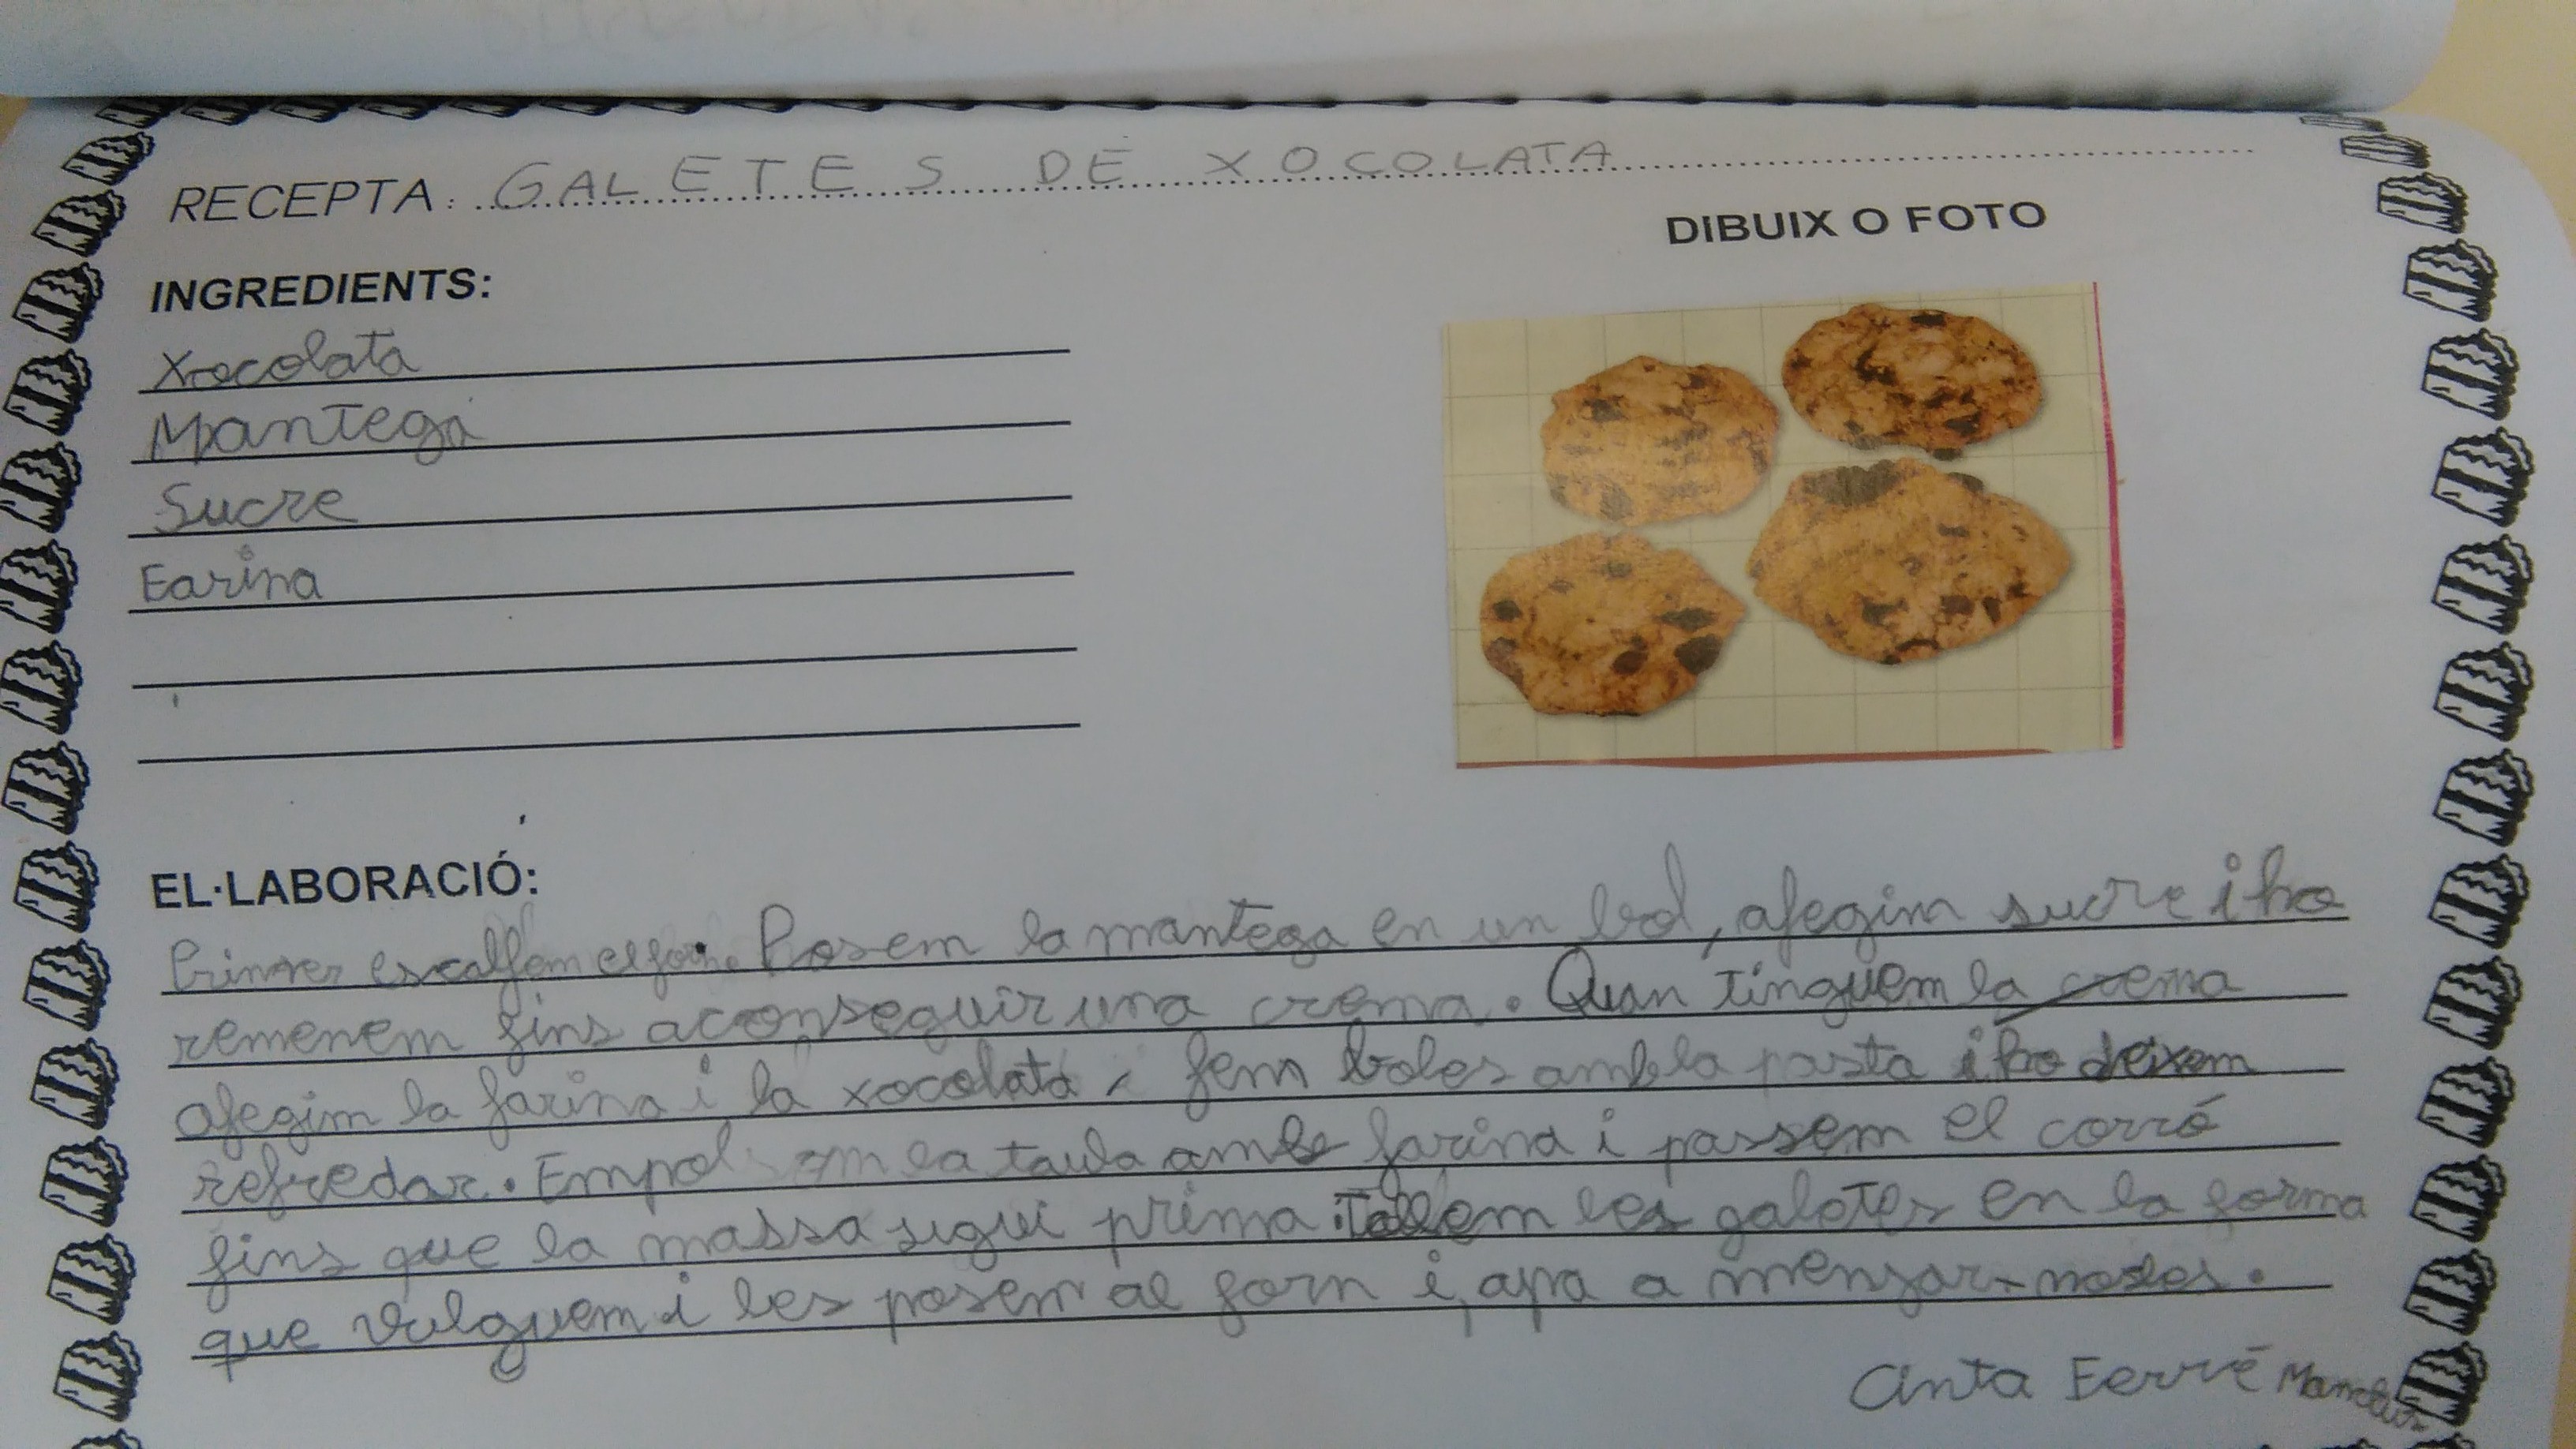 RECEPTA: GALETES DE XOCOLATA
DIBUIX O FOTO
INGREDIENTS:
Xocolata
Mantega
Sucre
Farina
EL·LABORACIÓ:
Primer escalfem el forn. Posem la mantega en un bol, afegim sucre i ho
remenem fins aconseguir una crema. Quan tinguem la crema
afegim la farina i la xocolata, fem boles amb la pasta i ho deixem
refredar. Empolsem la taula amb farina i passem el corró
fins que la massa sigui prima. Tallem les galetes en la forma
que vulguem i les posem al forn i, apa a menjar-nosles.
Cinta Ferré